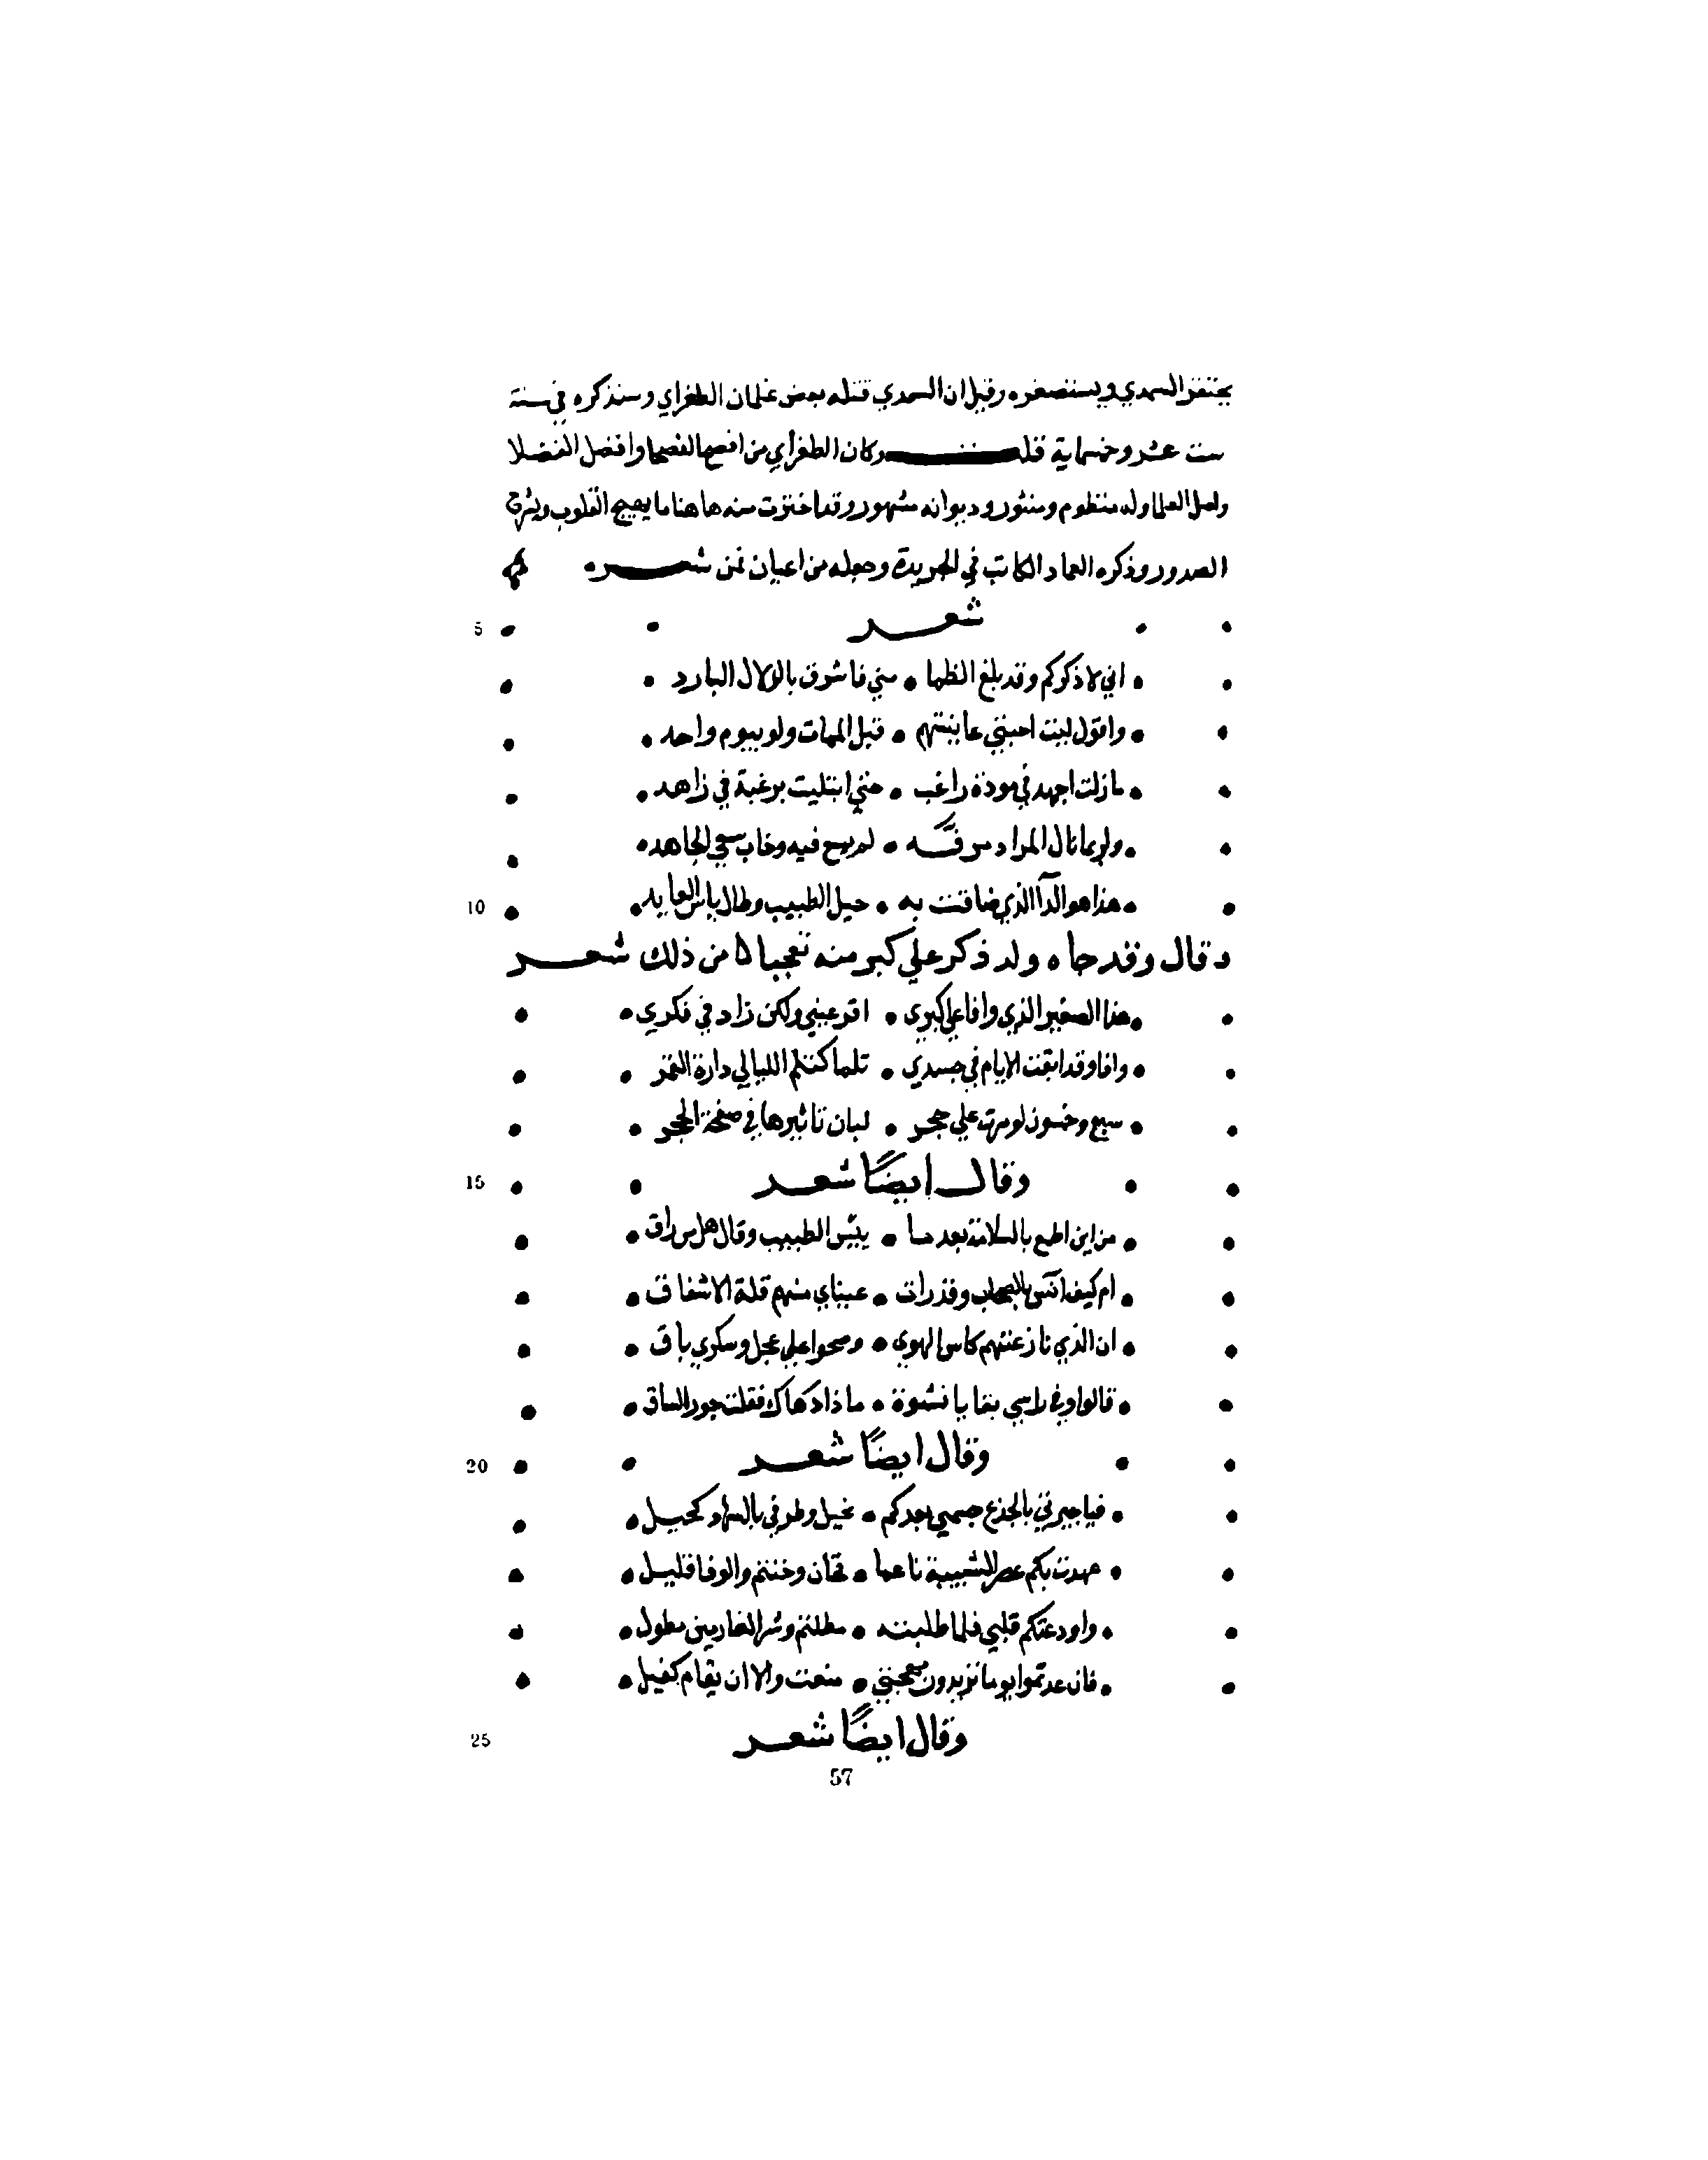 يحتقر السميرمي ويستصغره وقيل ان السمرمي قتله بعض غلمان الطغراي وسنذكره في سنة
ست عشر وخمسماية قلت وكان الطغرأي من افصح الفصحا وافضل الفضلا
وله منظوم ومنثور وديوانه مشهور وقد اخترت منه هاهنا ما يهيج القلوب ويشرح
الصدور وذكره العماد الكاتب في الخريدة وجعله من اعيان شعره
5 شعر
اني لاذكركم وقد بلغ الظما • مني فاشرق بالزلال البارد
واقول ليت احبتي عاينتهم • قبل الممات ولو بيوم واحد
مازلت اجهد في مودة راغب • حتي ابتليت برغبة في زاهد
ولربما نال المراد مرفّه • لم يسع فيه وخاب سعي الجاهد
10 هذا هو الدآ الذي ضاقت به • حيل الطبيب وطال ياس العايد
وقال وقد جاه ولد ذكر علي كبر منه تعجبا من ذلك شعر
هذا الصغير الذي وافا علي كبري • اقر عيني ولكن زاد في فكري
وافا وقد ابقت الايام في جسدي • ثلما كثلم الليالي دارة القمر
سبع وخمسون لو مرت علي حجر • لبان تاثيرها في صفحة الحجر
15 وقال ايضًا شعر
من اين اطمع بالسلامة بعد ما • يئس الطبيب وقال هل من راق
ام كيف انس بالصحاب وقد رات • عيناي منهم قلة الاشفاق
ان الذي نازعتهم كاس الهوي • وصحوا علي عجل وسكري باق
قالوا وفي راسي بقايا نشوة • ماذا دهاك فقلت جور الساق
20 وقال ايضًا شعر
فيا جيرتي بالجذع جسمي بعدكم • نحيل وطرفي بالسهاد كحيل
عهدت بكم عصر الشبيبة ناعما • فخان وخنتم والوفا قليل
واودعتكم قلبي فلما طلبته • مطلتم وشر الغارمين مطول
فان عدتموا يوما تريدون مهجتي • منعت والا ان يقام كفيل
25 وقال ايضًا شعر
57